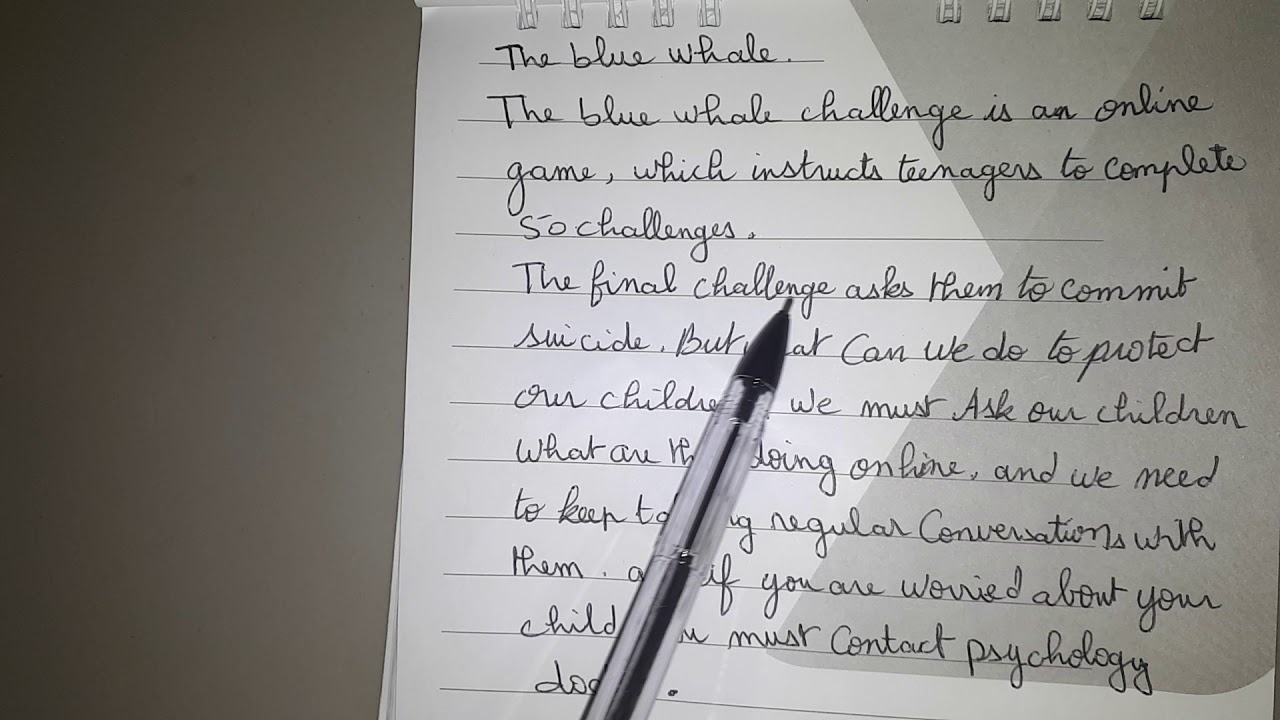 The blue whale.
The blue whale challenge is an online
game, which instructs teenagers to complete
50 challenges.
The final challenge asks them to commit
suicide. But at Can we do to protect
our we must Ask our children
What are doing online, and we need
to keep regular Conversations with
them. if you are worried about your
child must Contact psychology